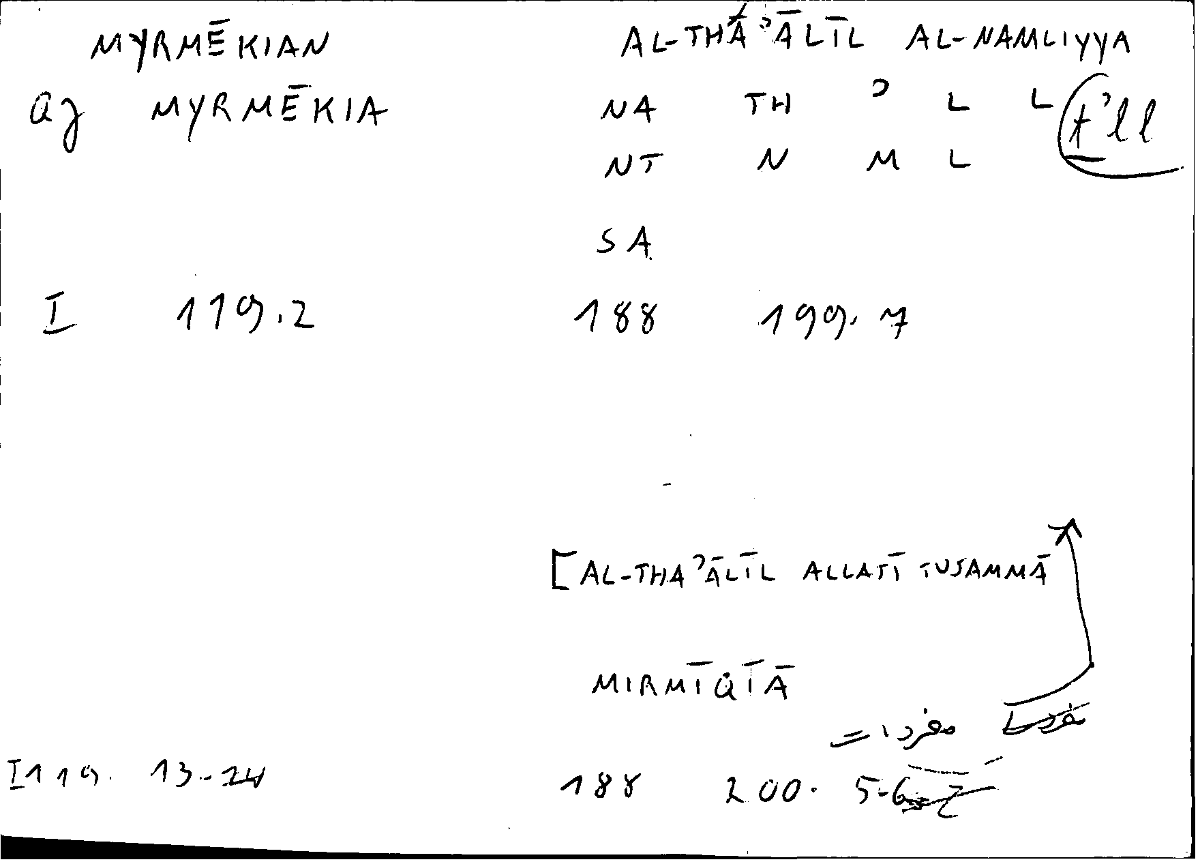 MYRMĒKIAN AL-THAʾĀLĪL AL-NAMLIYYA
aj MYRMĒKIA NA TH ʾ L L ṯʾll
NT N M L
SA
I 119.2 188 199.7
[AL-THAʾĀLĪL ALLATĪ TUSAMMĀ
MIRMĪQĪĀ
مفردات
I 119. 13-14 188 200. 5-6